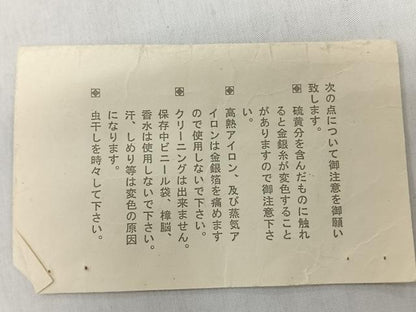 次の点について御注意を御願い
致します。
※ 硫黄分を含んだものに触れ
ると金銀糸が変色すること
がありますので御注意下さ
い。
※ 高熱アイロン、及び蒸気ア
イロンは金銀箔を痛めます
ので使用しないで下さい。
※ クリーニングは出来ません。
※ 保存中ビニール袋、樟脳、
香水は使用しないで下さい。
汗、しめり等は変色の原因
になります。
※ 虫干しを時々して下さい。